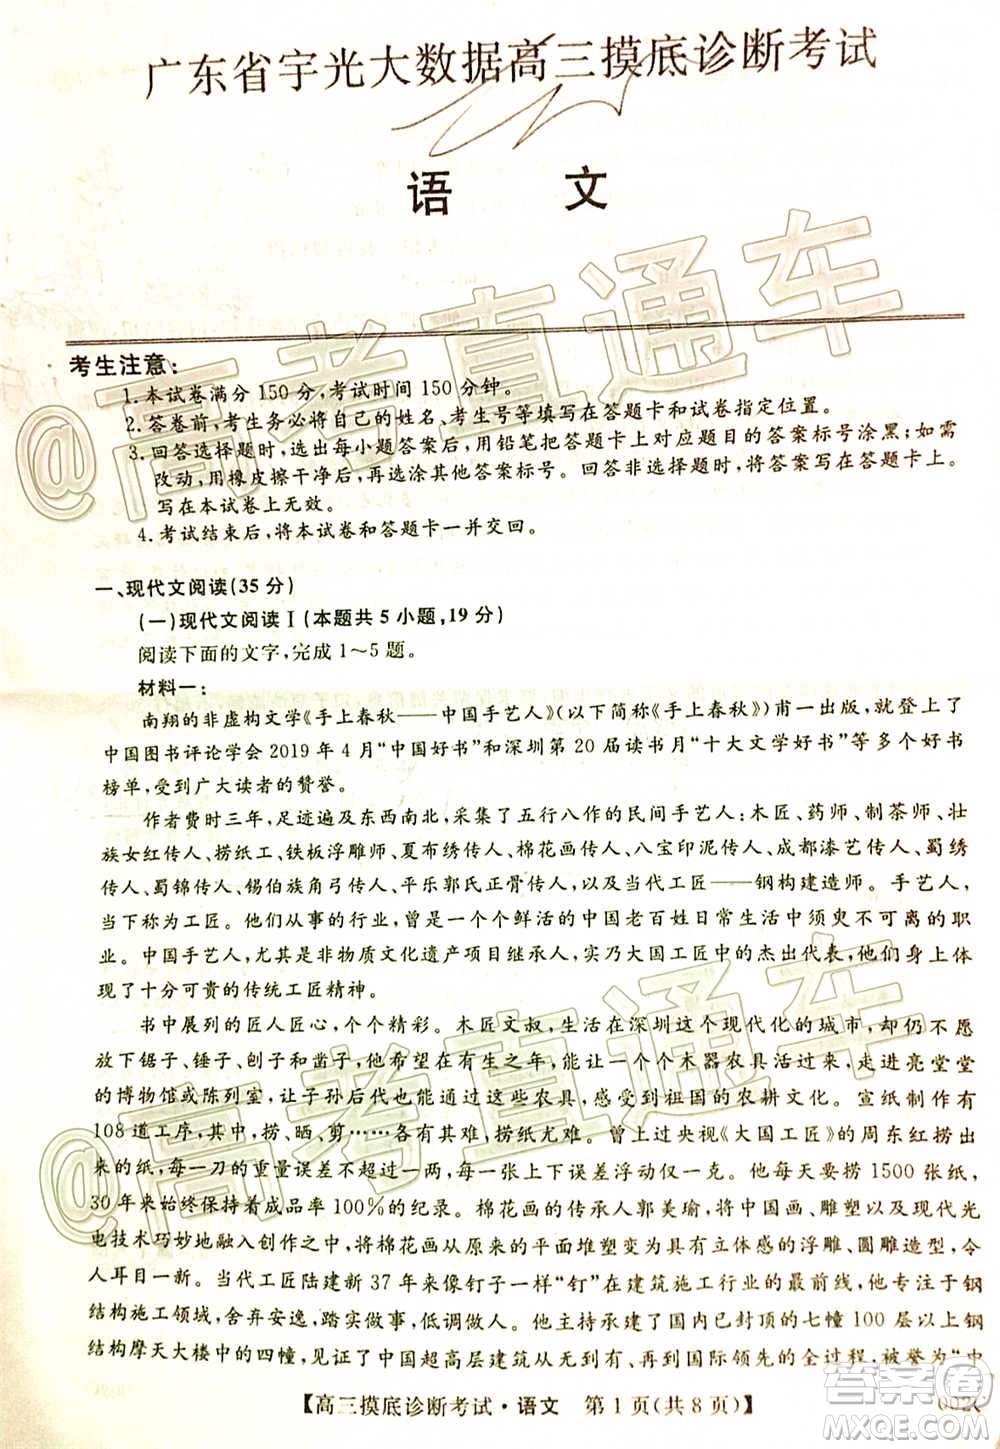 广东省宇光大数据高三摸底诊断考试
语 文
考生注意：
1.本试卷满分150分,考试时间150分钟。
2.答卷前,考生务必将自己的姓名、考生号等填写在答题卡和试卷指定位置。
3.回答选择题时,选出每小题答案后,用铅笔把答题卡上对应题目的答案标号涂黑;如需
改动,用橡皮擦干净后,再选涂其他答案标号。回答非选择题时,将答案写在答题卡上。
写在本试卷上无效。
4.考试结束后,将本试卷和答题卡一并交回。
一、现代文阅读(35分)
(一)现代文阅读Ⅰ(本题共5小题,19分)
阅读下面的文字,完成1～5题。
材料一:
南翔的非虚构文学《手上春秋——中国手艺人》(以下简称《手上春秋》)甫一出版,就登上了
中国图书评论学会2019年4月“中国好书”和深圳第20届读书月“十大文学好书”等多个好书
榜单,受到广大读者的赞誉。
作者费时三年,足迹遍及东西南北,采集了五行八作的民间手艺人:木匠、药师、制茶师、壮
族女红传人、捞纸工、铁板浮雕师、夏布绣传人、棉花画传人、八宝印泥传人、成都漆艺传人、蜀绣
传人、蜀锦传人、锡伯族角弓传人、平乐郭氏正骨传人,以及当代工匠——钢构建造师。手艺人,
当下称为工匠。他们从事的行业,曾是一个个鲜活的中国老百姓日常生活中须臾不可或离的职
业。这些手艺人,尤其是非物质文化遗产项目继承人,实乃大国工匠中的杰出代表,他们身上体
现了十分可贵的传统工匠精神。
书中展列的匠人匠心,个个精彩。木匠文叔,生活在深圳这个现代化的城市,却仍不愿
放下锯子、锤子、刨子和凿子,他希望在有生之年,能把一个个木器农具活过来,走进亮堂堂
的博物馆或陈列室,让子孙后代都能通过这些农具,感受到祖国的农耕文化。宣纸制作有
108道工序,其中,捞、晒、剪……都是精细活,捞纸尤难。曾上过央视《大国工匠》的周东红捞出
来的纸,每一刀的误差不超过一两,每一张上下误差浮动仅一克。他每天要捞1500张纸,
30年来始终保持着成品率100%的纪录。棉花画的传承人郭美瑜,将国画、雕塑以及现代光
电技术巧妙地融入创作之中,将棉花画从平面堆塑变为具有立体感的浮雕、圆雕造型,
令人耳目一新。当代工匠陆建新37年来像钉子一样“钉”在建筑施工行业的最前线,他专注于钢
结构施工领域,舍弃安逸,踏实做事,成就卓越。他主导承建了国内已封顶的七幢100层以上钢
结构摩天大楼中的四幢,见证了中国超高层建筑从无到有,再到国际领先的全过程,被誉为“中
【高三摸底诊断考试·语文 第1页(共8页)】
002C
@高考直通车
@高考直通车
答案圈
MXQE.COM